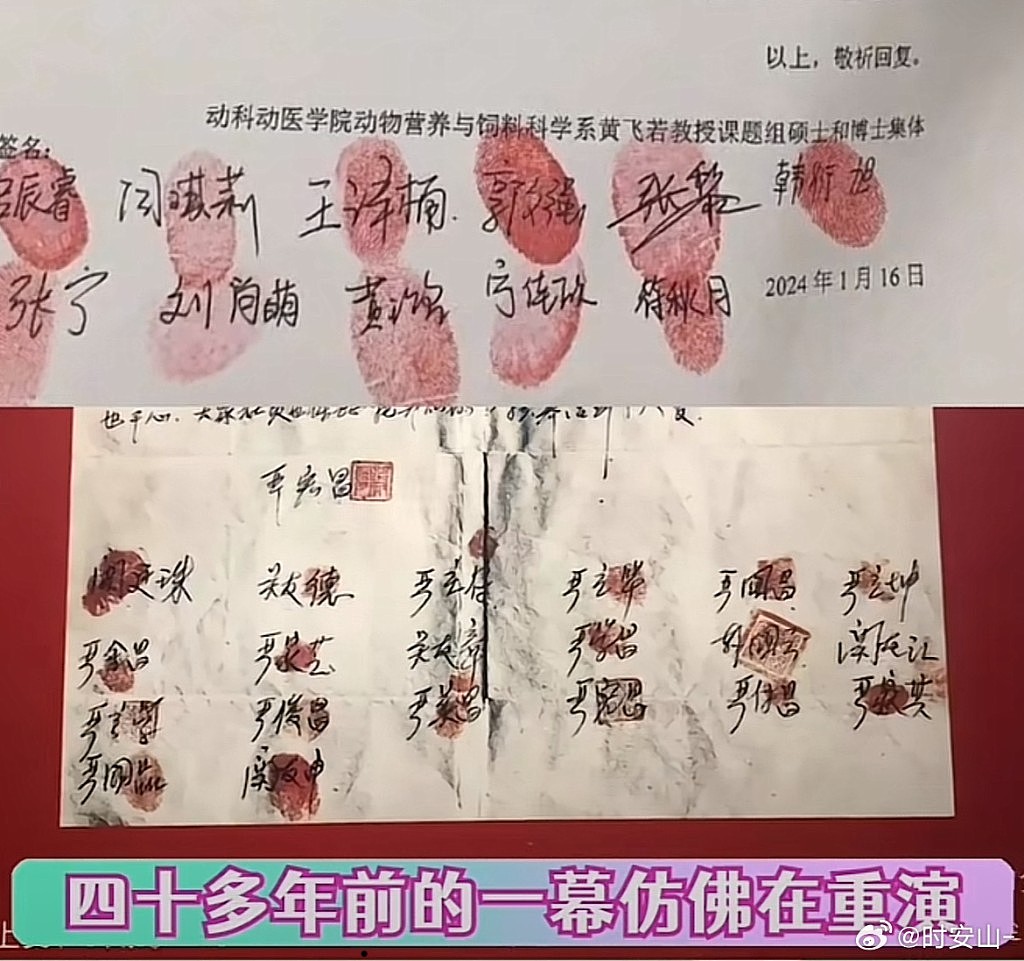 以上，敬祈回复。
动科动医学院动物营养与饲料科学系黄飞若教授课题组硕士和博士集体
签名：
吕辰睿 闫琪莉 王泽楠 张黎
张宁 刘尚萌 符秋月 2024年1月16日
严宏昌
关廷珠 关友德 严立符 严立华 严国昌 严立坤
严金昌 严家芝 关友章 严学昌 韩国云 关友江
严立学 严俊昌 严美昌 严宏昌 严付昌 严家其
严国品 关友申
四十多年前的一幕仿佛在重演
@时安山-